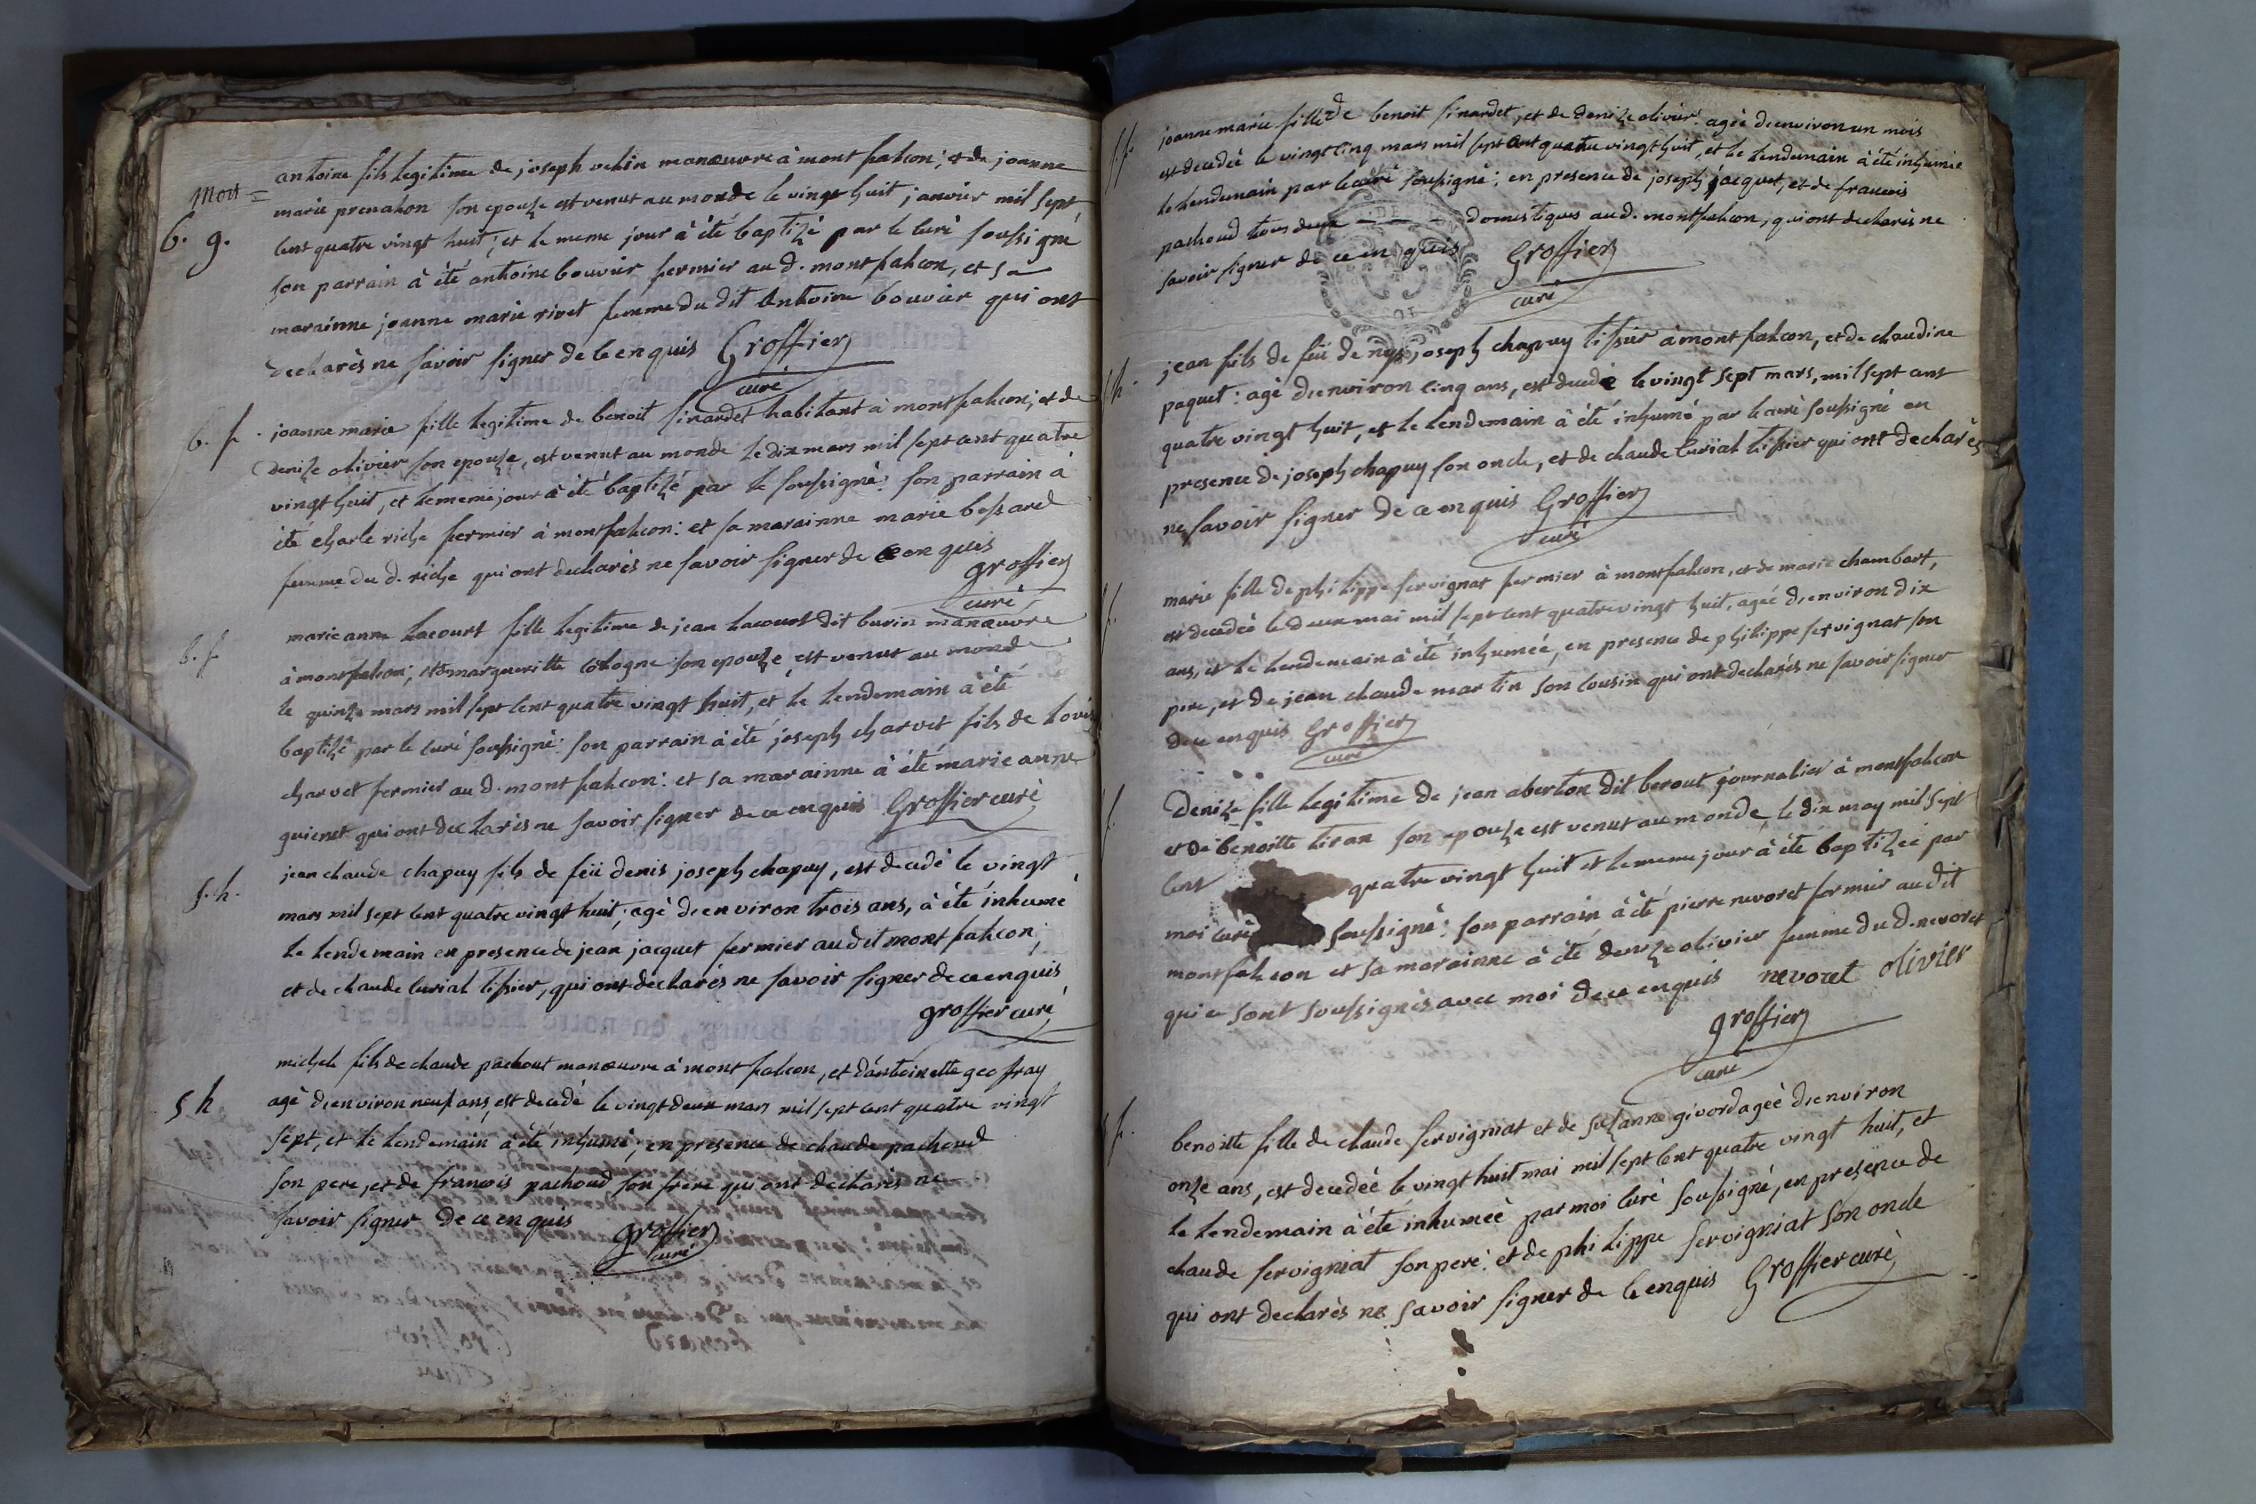 mort =
b. g.
antoine fils legitime de joseph velin manœuvre à montfalcon; et de joanne
marie prenalon son epouze est venut au monde le vingt huit janvier mil sept
cent quatre vingt huit; et le meme jour à été baptizé par le curé soussigné
son parrain à été antoine bouvier fermier au d. montfalcon, et sa
marainne joanne marie rivet femme du dit antoine bouvier qui ont
declarès ne savoir signer de ce enquis Groffier
curé
b. f.
joanne marie fille legitime de benoit sinardet habitant à montfalcon; et de
denize olivier son epouze, est venut au monde le dix mars mil sept cent quatre
vingt huit, et le meme jour à été baptizé par le soussigné: son parrain à
été charle riche fermier à montfalcon: et sa marainne marie bossard
femme du d. riche qui ont declarès ne savoir signer de ce enquis
groffier
curé
b. f.
marie anne lacourt fille legitime de jean lacourt dit burin manœuvre
à montfalcon; et de margueritte cologne son epouze est venut au monde
le quinze mars mil sept cent quatre vingt huit, et le lendemain à été
baptizé par le curé soussigné: son parrain à été joseph charvet fils de lovis
charvet fermier au d. montfalcon: et sa marainne à été marie anne
guienet qui ont declarès ne savoir signer de ce enquis Groffier curé
s. h.
jean claude chapuy fils de feü denis joseph chapuy, est decedé le vingt
mars mil sept cent quatre vingt huit; agé d'environ trois ans, à été inhumé
le lendemain en presence de jean jacquet fermier au dit montfalcon;
et de claude curial tissier, qui ont declarés ne savoir signer de ce enquis
groffier curé
s h
michele fils de claude pachout manœuvre à montfalcon, et d'antoinette geoffray
agé d'environ neuf ans, est decedé le vingt deux mars mil sept cent quatre vingt
sept, et le lendemain à été inhumé; en presence de claude pachoud
son pere, et de francois pachoud son frere qui ont declarés ne
savoir signer de ce enquis groffier
curé
s. f.
joanne marie fille de benoit sinardet, et de denize olivier agée d'environ un mois
est decedée le vingt cinq mars mil sept cent quatre vingt huit, et le lendemain à été inhumée
le lendemain par le curé soussigné; en presence de joseph jacquet, et de francois
pachoud tous deux domestiques au d. montfalcon, qui ont declarès ne
savoir signer de ce enquis Groffier
curé
h.
jean fils de feü denys joseph chapuy tissier à montfalcon, et de claudine
paquet: agé d'environ cinq ans, est decedé le vingt sept mars, mil sept cent
quatre vingt huit, et le lendemain à été inhumé par le curé soussigné en
presence de joseph chapuy son oncle, et de claude curial tissier qui ont declarès
ne savoir signer de ce enquis Groffier
curé
f.
marie fille de philippe servignat fermier à montfalcon, et de marie chambart,
est decedée le deux mai mil sept cent quatre vingt huit, agée d'environ dix
ans, et le lendemain à été inhumée, en presence de philippe servignat son
pere, et de jean claude martin son cousin qui ont declarés ne savoir signer
de ce enquis Groffier
curé
f.
Denize fille legitime de jean aberton dit berout journalier à montfalcon
et de benoitte tiran son epouze est venut au monde le dix may mil sept
cent quatre vingt huit et le meme jour à été baptizée par
moi curé soussigné: son parrain à été pierre nevoret fermier au dit
montfalcon et sa marainne à été denize olivier femme du d. nevoret
qui ce sont soussignés avec moi de ce enquis nevoret olivier
groffier
curé
f.
benoitte fille de claude servigniat et de suzanne givord agée d'environ
onze ans, est decedée le vingt huit mai mil sept cent quatre vingt huit, et
le lendemain à été inhumée par moi curé soussigné, en presence de
claude servigniat son pere. et de philippe servigniat son oncle
qui ont declarès ne savoir signer de ce enquis Groffier curé